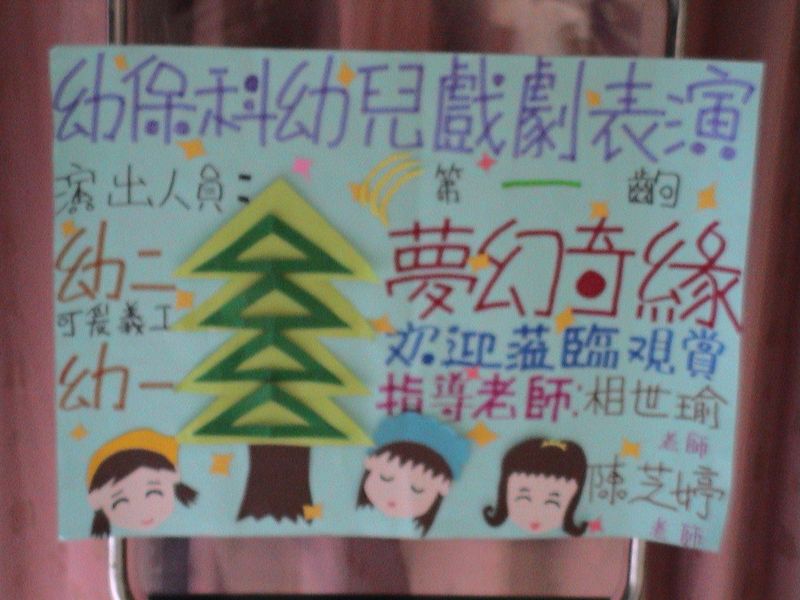 幼保科幼兒戲劇表演
演出人員：
第一齣
幼二
夢幻奇緣
可愛義工
欢迎蒞臨观賞
幼一
指導老師：相世瑜
老師
陳芝婷
老師